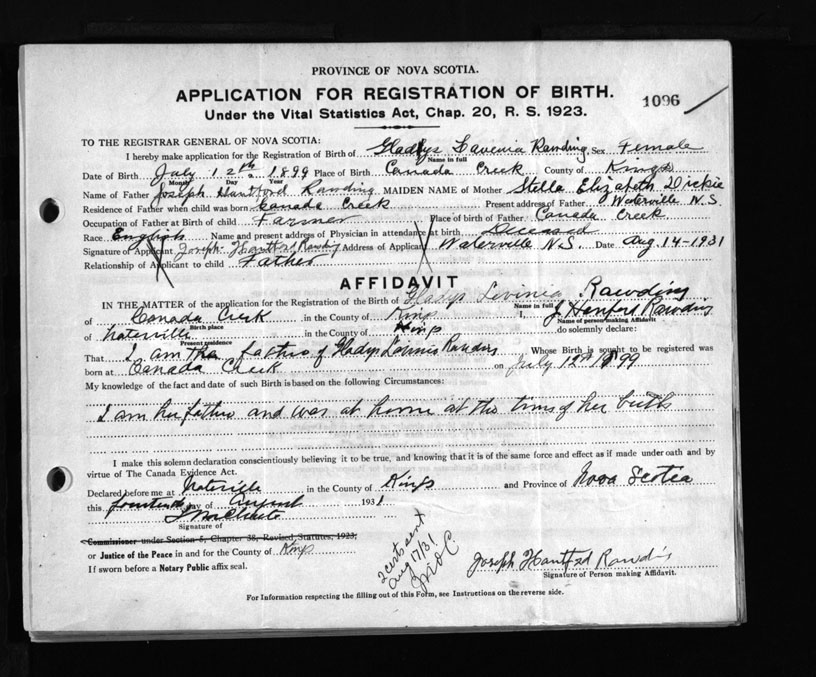 PROVINCE OF NOVA SCOTIA.
APPLICATION FOR REGISTRATION OF BIRTH.
1096
Under the Vital Statistics Act, Chap. 20, R. S. 1923.
TO THE REGISTRAR GENERAL OF NOVA SCOTIA:
I hereby make application for the Registration of Birth of Gladys Lavenia Rawding Sex Female
Name in full
Date of Birth July 12th 1899 Place of Birth Canada Creek County of Kings
Month Day Year
Name of Father Joseph Hantford Rawding MAIDEN NAME of Mother Stella Elizabeth Dickie
Residence of Father when child was born Canada Creek Present address of Father Waterville N.S.
Occupation of Father at Birth of child Farmer Place of birth of Father Canada Creek
Race English Name and present address of Physician in attendance at birth Deceased
Signature of Applicant Joseph Hantford Rawding Address of Applicant Waterville N.S. Date Aug. 14-1931
Relationship of Applicant to child Father
AFFIDAVIT
IN THE MATTER of the application for the Registration of the Birth of Gladys Levinia Rawding
Name in full
of Canada Creek in the County of Kings I, J Hanford Rawding
Birth place Name of Person making Affidavit
of Waterville in the County of Kings do solemnly declare:
Present residence
That I am the father of Gladys Rawding Whose Birth is sought to be registered was
born at Canada Creek on July 12th 1899
My knowledge of the fact and date of such Birth is based on the following Circumstances:
I am her father and was at home at the time of her birth
I make this solemn declaration conscientiously believing it to be true, and knowing that it is of the same force and effect as if made under oath and by
virtue of The Canada Evidence Act.
Declared before me at Waterville in the County of Kings and Province of Nova Scotia
this fourteenth day of August 1931
Signature of
Commissioner under Section 5, Chapter 38, Revised Statutes, 1923,
or Justice of the Peace in and for the County of Kings
If sworn before a Notary Public affix seal.
2 certs sent
Aug 17/31
Joseph Hantford Rawding
Signature of Person making Affidavit.
For Information respecting the filling out of this Form, see Instructions on the reverse side.